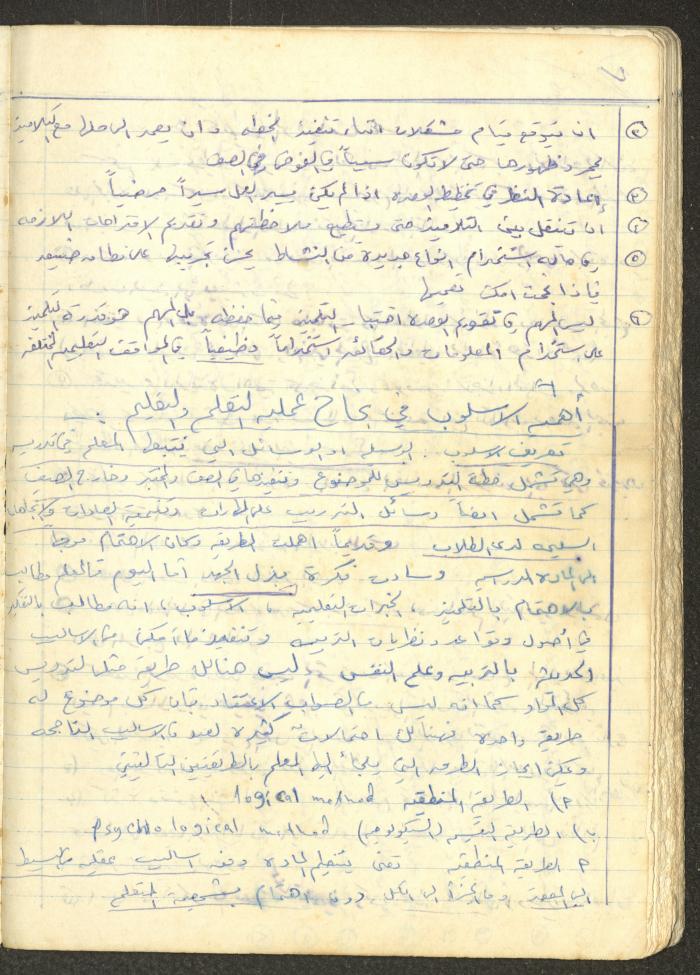 ٧
② ان يتوقع قيام مشكلات اثناء تنفيذ الخطه وان يعمد الى حلها مع التلاميذ
بمجرد ظهورها حتى لا تكون سبباً في الفوضى في الصف
③ إعادة النظر في تخطيط الوحده اذا لم يكن سير العمل سيراً مرضياً
④ ان تنتقل بين التلاميذ حتى يستطيع ملاحظتهم وتقديم الاقتراحات اللازمه
⑤ في حاله استخدام انواع جديدة من النشاط يحسن تجريبها على نطاق ضيق
فإذا نجحت امكن تعميمها
⑥ ليس المهم في تقويم الوحده اختبار التلميذ فيما حفظه بل المهم هو قدرة التلميذ
على استخدام المعلومات والحقائق استخداماً وظيفياً في المواقف التعليميه المختلفه
أهمية الاسلوب في نجاح عمليه التعلم والتعليم :
تعريف الاسلوب : الوسيله او الوسائل التي يتبعها المعلم في تدريسه
وهي تشمل خطة التدريس للموضوع وتنفيذها في الصف والمختبر وخارج الصف
كما تشمل ايضاً وسائل التدريب على المهارات وتنمية العادات والاتجاهات
السليمه لدى الطلاب وقديماً اهملت الطريقه وكان الاهتمام موجهاً
الى الماده الدراسيه وسادت فكرة بذل الجهد أما اليوم فالمعلم مطالب
بالاهتمام بالتلميذ ، الخبرات التعليميه ، الاسلوب ، انه مطالب بالتفكير
في أصول وقواعد ونظريات التربيه وتنفيذ ما أمكن من الاساليب
الحديثه بالتربيه وعلم النفس وليس هنالك طريقة مثلى لتدريس
كل المواد كما انه ليس من الصواب الاعتقاد بأن كل موضوع له
طريقة واحدة فهنالك احتمالات كثيرة لعدد من الاساليب الناجحه
ويمكن ايجاز الطرق التي يلجأ اليها المعلم بالطريقتين التاليتين
أ) الطريقة المنطقيه logical method
ب) الطريقه النفسيه (السيكولوجيه) psychological method
أ الطريقه المنطقيه تعنى بتنظيم الماده وفق اساليب عقليه من البسيط
الى المعقد ومن الجزء الى الكل دون اهتمام بشخصية المتعلم